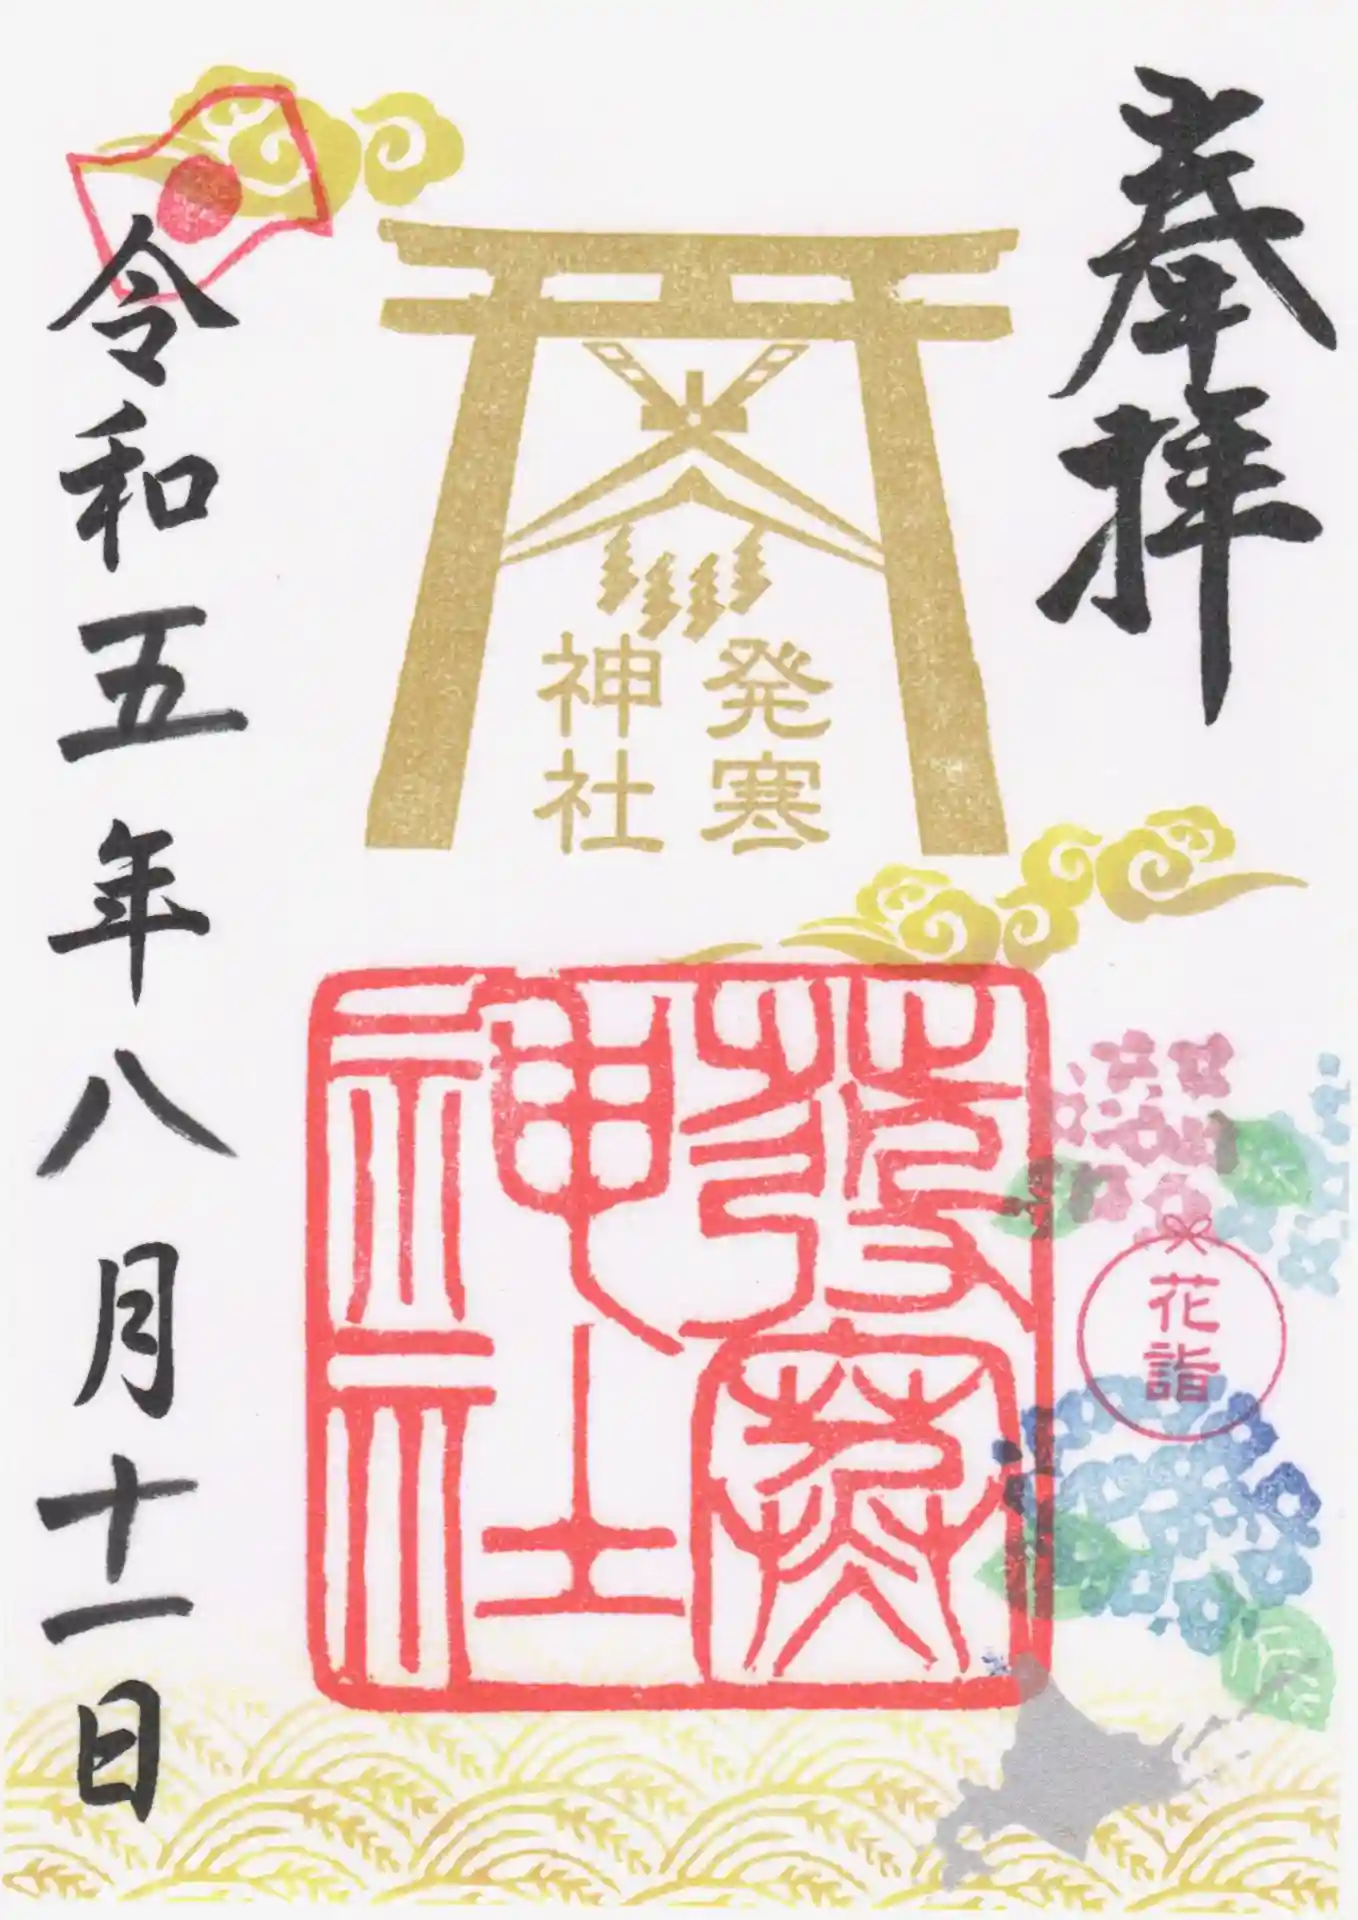 奉拝
発寒
神社
發寒
神社
花詣
令和五年八月十一日